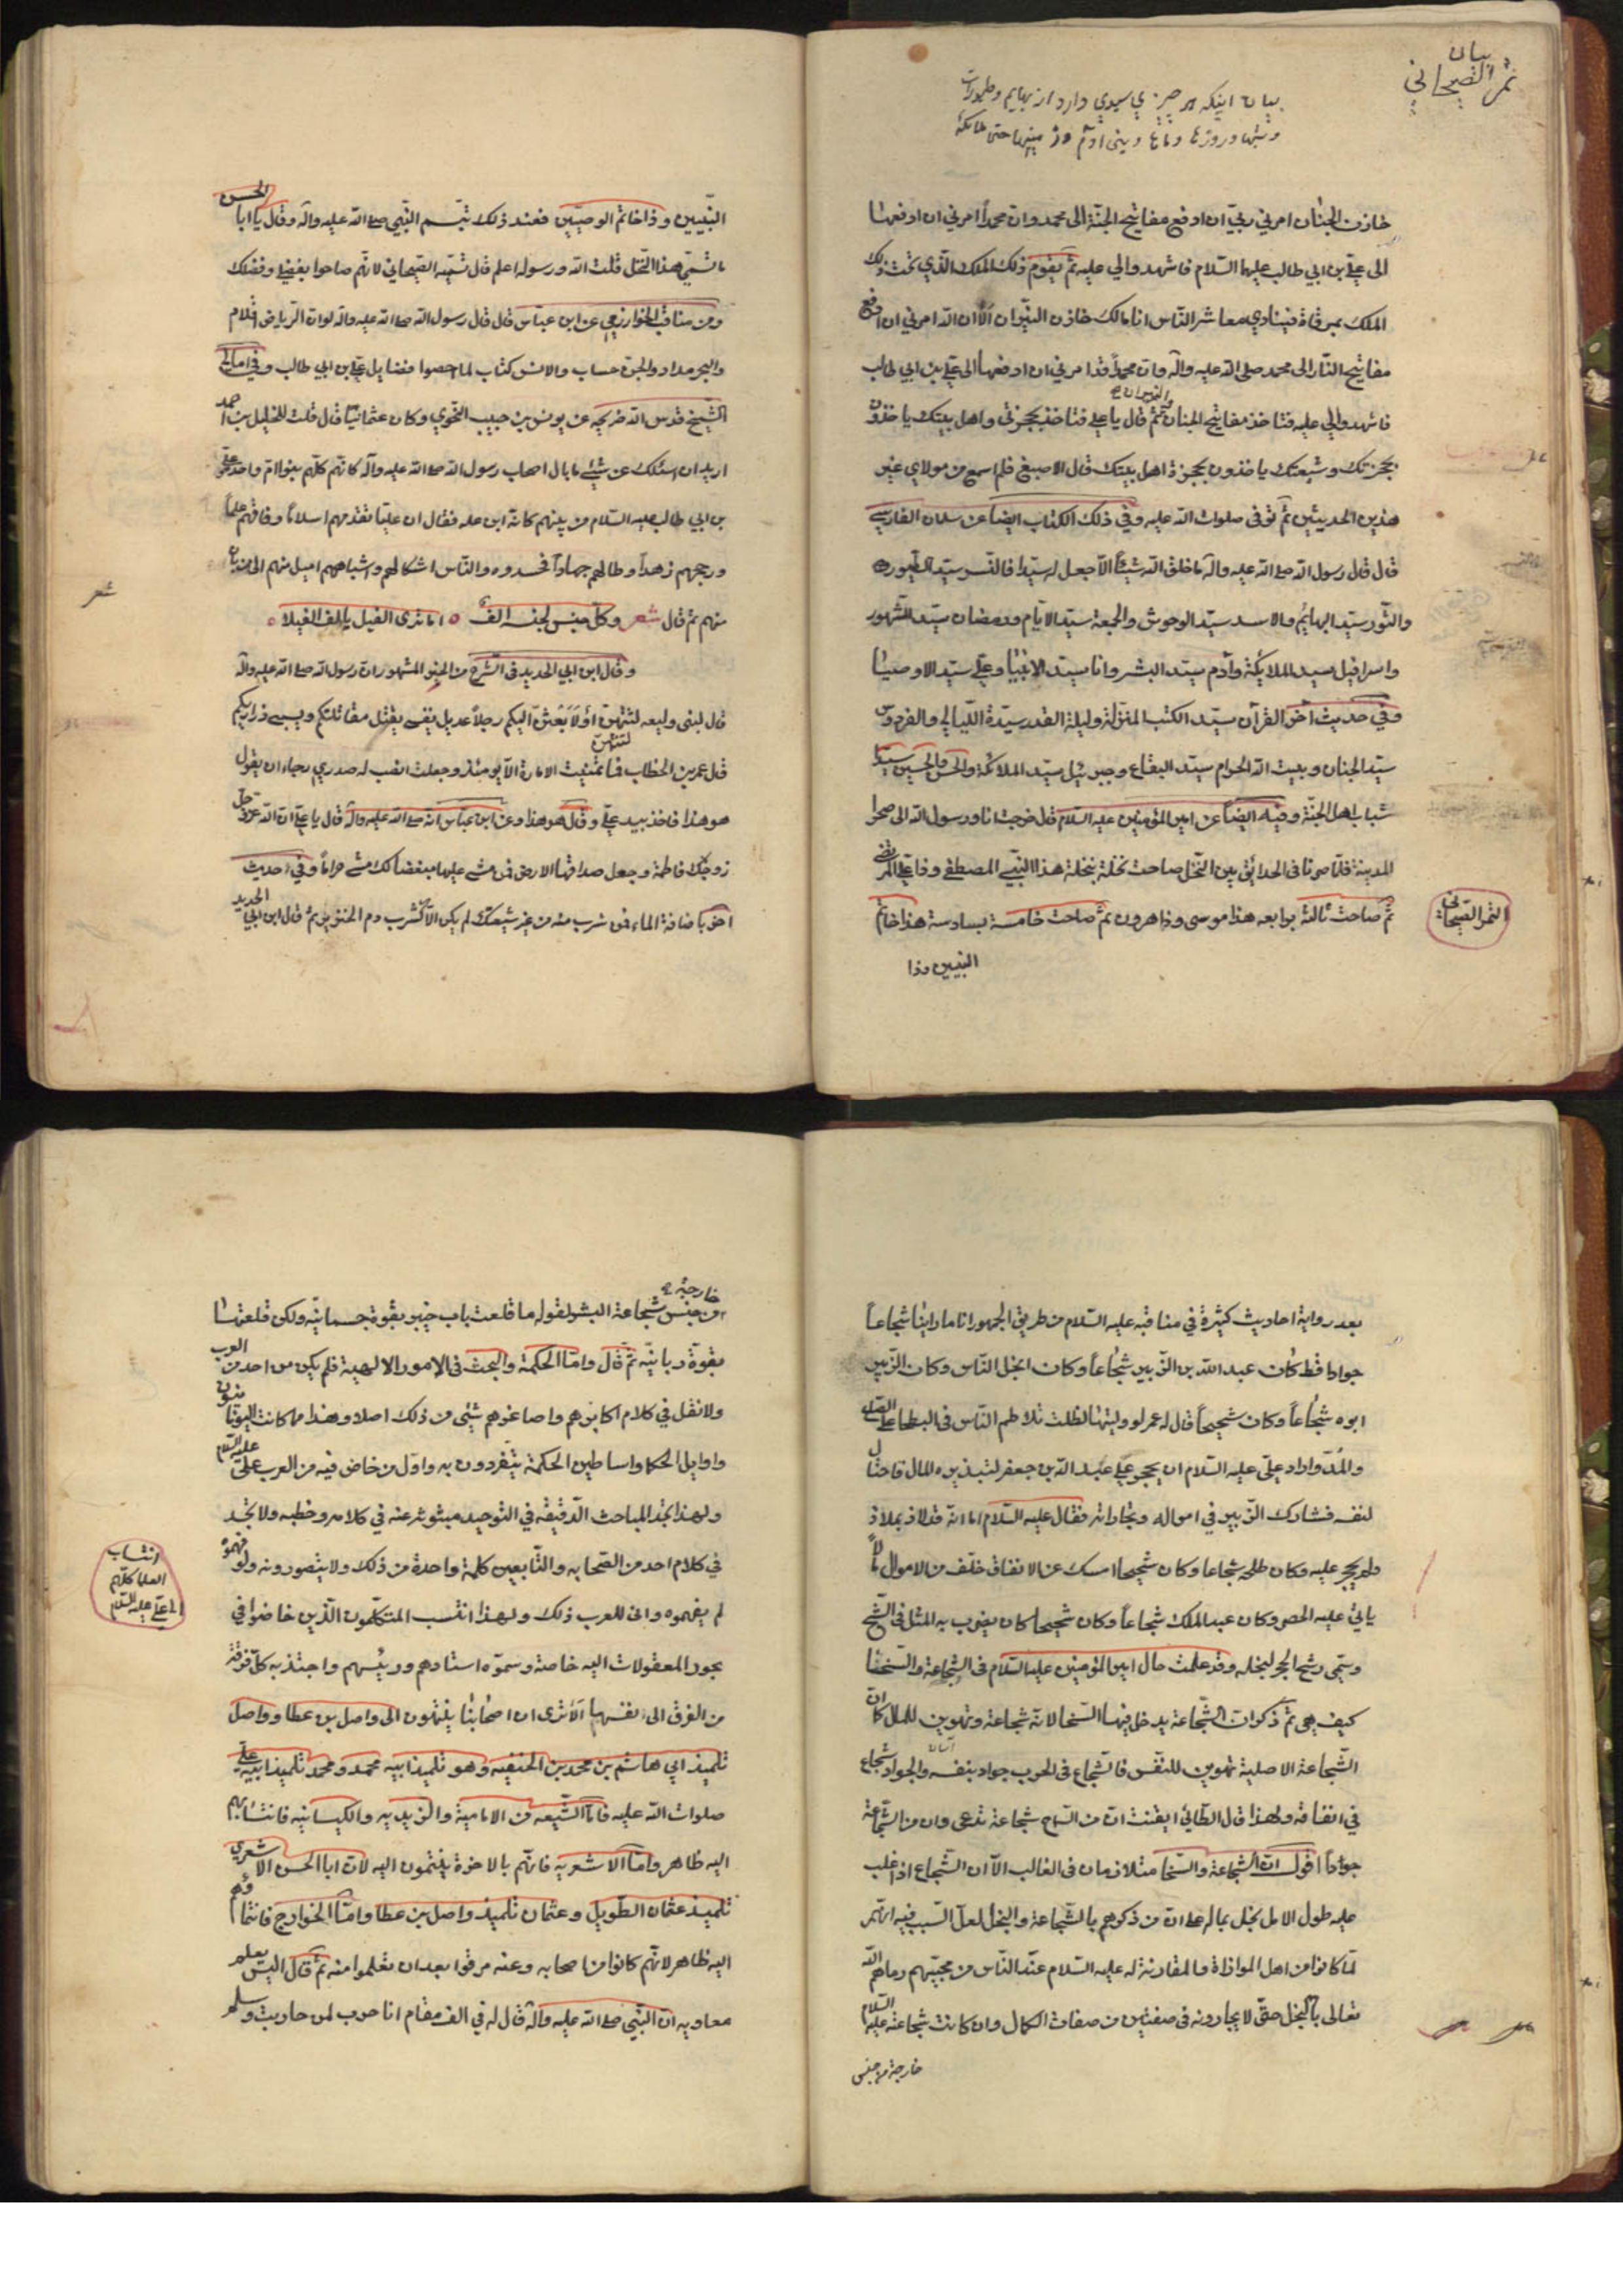 بيان
تمر الصيحاني
بيان اينكه هر چيزي سيدي دارد از بهايم و طيورات
خازن الجنان امرني ربي ان ادفع مفاتيح الجنة الى محمد وان محمداً امرني ان ادفعها
الى علي بن ابي طالب عليها السلام فاشهدوا لي عليه ثم يقوم ذلك الملك الذي تحت ذلك
الملك بمرقاة فينادي معاشر الناس انا مالك خازن النيران ألا ان الله امرني ان ادفع
مفاتيح النار الى محمد صلى الله عليه وآله وان محمداً قد امرني ان ادفعها الى علي بن ابي طالب
والنيران
فاشهدوا لي عليه فتاخذ مفاتيح الجنان ثم قال يا علي فتاخذ بحجزتي واهل بيتك ياخذون
بحجزتك وشيعتك ياخذون بحجزة اهل بيتك قال الاصبغ فلم اسمع من مولاي غير
هذين الحديثين ثم توفى صلوات الله عليه وفي ذلك الكتاب ايضاً عن سلمان الفارسي
قال قال رسول الله صلى الله عليه وآله ما خلق الله شيئاً الا جعل له سيداً فالنسر سيد الطيور
والثور سيد البهائم والاسد سيد الوحوش والجمعة سيد الايام ورمضان سيد الشهور
واسرافيل سيد الملايكة وآدم سيد البشر وانا سيد الانبيا وعلي سيد الاوصيا
وفي حديث آخر القرآن سيد الكتب المنزلة وليلة القدر سيدة الليالي والفردوس
سيد الجنان وبيت الله الحرام سيد البقاع وجبرئيل سيد الملائكة والحسن والحسين سيدا
شباب اهل الجنة وفيه ايضاً عن امير المؤمنين عليه السلام قال خرجت انا ورسول الله الى صحرا
المدينة فلما صرنا في الحدائق بين النخل صاحت نخلة بنخلة هذا النبي المصطفى وذا علي المرتضى
ثم صاحت ثالثة برابعه هذا موسى وذا هرون ثم صاحت خامسة بسادسة هذا خاتم
التمر الصيحاني
النبيين وذا
النبيين وذا خاتم الوصيين فعند ذلك تبسم النبي صلى الله عليه وآله وقال يا ابا الحسن
ما تسمي هذا النخل قلت الله ورسوله اعلم قال نسميه الصيحاني لانهم صاحوا بفضلي وفضلك
ومن مناقب الخوارزمي عن ابن عباس قال قال رسول الله صلى الله عليه وآله لو ان الرياض اقلام
والبحر مداد والجن حساب والانس كتاب لما احصوا فضايل علي بن ابي طالب وفي امالي
الشيخ قدس الله ضريحه عن يونس بن حبيب النحوي وكان عثمانيا قال قلت للخليل بن احمد
اريد ان اسئلك عن شيئ ما بال اصحاب رسول الله صلى الله عليه وآله كانهم كلهم بنوا ام واحد وعلي
بن ابي طالب عليه السلام من بينهم كانه ابن علة فقال ان عليا تقدمهم اسلاماً وفاقهم علماً
ورجحهم زهداً وطالهم جهاداً فحسدوه والناس اشكالهم واشباههم اميل منهم الى من بان
منهم ثم قال شعر وكل جنس لجنسه الف ٥ اما ترى الفيل يالف الفيلا ٥
شعر
وقال ابن ابي الحديد في الشرح من الخبر المشهور ان رسول الله صلى الله عليه وآله
قال لبني وليعه لتنتهن او لابعثن اليكم رجلاً عديل نفسي يقتل مقاتلتكم ويسبي ذراريكم
لتنتهن
قال عمر بن الخطاب فما تمنيت الامارة الا يومئذ وجعلت انصب له صدري رجاء ان يقول
هو هذا فاخذ بيد علي وقال هو هذا وعن ابن عباس انه صلى الله عليه وآله قال يا علي ان الله عز وجل
زوجك فاطمة وجعل صداقها الارض فمن مشى عليها مبغضا لك مشى حراماً وفي حديث
اخر باضافة الماء فمن شرب منه من غير شيعتك لم يكن الا كشرب دم الخنزير ثم قال ابن ابي الحديد
بعد رواية احاديث كثيرة في مناقبه عليه السلام من طريق الجمهور انا ما راينا شجاعاً
جوادا قط كان عبد الله بن الزبير شجاعاً وكان ابخل الناس وكان الزبير
ابوه شجاعاً وكان شحيحاً قال له عمر لو وليتها لظلت تلاطم الناس في البطحا على الصاع
والمد واراد علي عليه السلام ان يحجر على عبد الله بن جعفر لتبذيره المال فاحتال
لنفسه فشارك الزبير في امواله وتجاراته فقال عليه السلام اما انه قد لاذ بملاذ
ولم يحجر عليه وكان طلحه شجاعا وكان شحيحا امسك عن الانفاق خلف من الاموال ما لا
ياتي عليه الحصر وكان عبد الملك شجاعاً وكان شحيحا كان يضرب به المثل في الشح
وسمي رشح الحجر لبخله وقد علمت حال امير المؤمنين عليه السلام في الشجاعة والسخا
كيف هي ثم ذكر ان الشجاعة يدخل فيها السخا لانه شجاعة وتهوين للمال كما ان
الشجاعة الاصلية تهوين للنفس فالشجاع في الحرب جواد بنفسه والجواد شجاع
في انفاقه ولهذا قال الطائي ايقنت ان من السماح شجاعة تدعى وان من الشجاعة
جوداً اقول ان الشجاعة والسخا متلازمان في الغالب الا ان الشجاع اذا غلب
عليه طول الامل بخل بماله على ان من ذكرهم بالشجاعة والبخل لعل السبب فيه انهم
لما كانوا من اهل الموازاة والمقارنة له عليه السلام عند الناس من محبيهم رماهم الله
تعالى بالبخل حتى لا يجاروه في صفتين من صفات الكمال وان كانت شجاعته عليه السلام
خارجة من جنس
خارجة
من جنس شجاعة البشر لقوله ما قلعت باب خيبر بقوة جسمانيه ولكن قلعتها
بقوة ربانيه ثم قال واما الحكمة والبحث في الامور الالهية فلم يكن من احد من العرب
ولا نقل في كلام اكابرهم واصاغرهم شيئ من ذلك اصلا وهذا مما كانت اليونانيون
واوايل الحكما واساطين الحكمة يتفردون به واول من خاض فيه من العرب علي عليه السلام
ولهذا تجد المباحث الدقيقه في التوحيد مبثوثه عنه في كلامه وخطبه ولا تجد
في كلام احد من الصحابه والتابعين كلمة واحدة من ذلك ولا يتصورونه ولو فهموه
لم يفهموه وانى للعرب ذلك ولهذا انتسب المتكلمون الذين خاضوا في
انتساب
العلما كلهم
الى علي عليه السلام
بحور المعقولات اليه خاصة وسموه استادهم ورئيسهم واجتذبه كل فرقة
من الفرق الى نفسها الا ترى ان اصحابنا ينتمون الى واصل بن عطا وواصل
تلميذ ابي هاشم بن محمد بن الحنفيه وهو تلميذ ابيه محمد ومحمد تلميذ ابيه علي
صلوات الله عليه فاما الشيعه من الامامية والزيديه والكيسانيه فانتسابهم
اليه ظاهر واما الاشعريه فانهم بالاخرة ينتمون اليه لان ابا الحسن الاشعري
تلميذ عثمان الطويل وعثمان تلميذ واصل بن عطا واما الخوارج فانتماؤهم
اليه ظاهر لانهم كانوا من اصحابه وعنه مرقوا بعد ان تعلموا منه ثم قال اليس يعلم
معاويه ان النبي صلى الله عليه وآله قال له في الف مقام انا حرب لمن حاربت وسلم